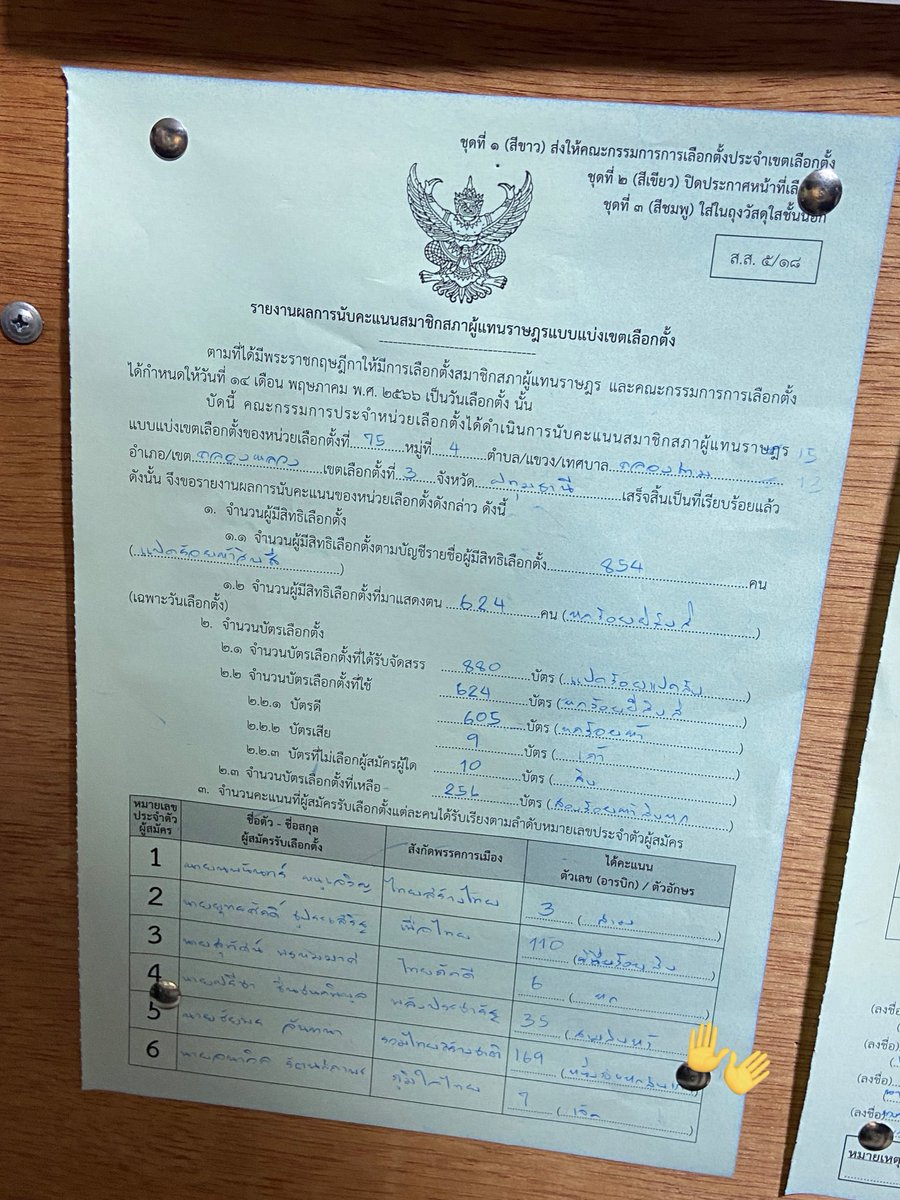 ชุดที่ ๑ (สีขาว) ส่งให้คณะกรรมการการเลือกตั้งประจำเขตเลือกตั้ง
ชุดที่ ๒ (สีเขียว) ปิดประกาศหน้าที่เลือ
ชุดที่ ๓ (สีชมพู) ใส่ในถุงวัสดุใสชั้นนอก
ส.ส. ๕/๑๘
รายงานผลการนับคะแนนสมาชิกสภาผู้แทนราษฎรแบบแบ่งเขตเลือกตั้ง
ตามที่ได้มีพระราชกฤษฎีกาให้มีการเลือกตั้งสมาชิกสภาผู้แทนราษฎร และคณะกรรมการการเลือกตั้ง
ได้กำหนดให้วันที่ ๑๔ เดือน พฤษภาคม พ.ศ. ๒๕๖๖ เป็นวันเลือกตั้ง นั้น
บัดนี้ คณะกรรมการประจำหน่วยเลือกตั้งได้ดำเนินการนับคะแนนสมาชิกสภาผู้แทนราษฎร
แบบแบ่งเขตเลือกตั้งของหน่วยเลือกตั้งที่ 75 หมู่ที่ 4 ตำบล/แขวง/เทศบาล คลองสาม
อำเภอ/เขต คลองหลวง เขตเลือกตั้งที่ 3 จังหวัด ปทุมธานี เสร็จสิ้นเป็นที่เรียบร้อยแล้ว
ดังนั้น จึงขอรายงานผลการนับคะแนนของหน่วยเลือกตั้งดังกล่าว ดังนี้
๑. จำนวนผู้มีสิทธิเลือกตั้ง
๑.๑ จำนวนผู้มีสิทธิเลือกตั้งตามบัญชีรายชื่อผู้มีสิทธิเลือกตั้ง 854 คน
(แปดร้อยห้าสิบสี่)
๑.๒ จำนวนผู้มีสิทธิเลือกตั้งที่มาแสดงตน 624 คน (หกร้อยยี่สิบสี่)
(เฉพาะวันเลือกตั้ง)
๒. จำนวนบัตรเลือกตั้ง
๒.๑ จำนวนบัตรเลือกตั้งที่ได้รับจัดสรร 880 บัตร (แปดร้อยแปดสิบ)
๒.๒ จำนวนบัตรเลือกตั้งที่ใช้ 624 บัตร (หกร้อยยี่สิบสี่)
๒.๒.๑ บัตรดี 605 บัตร (หกร้อยห้า)
๒.๒.๒ บัตรเสีย 9 บัตร (เก้า)
๒.๒.๓ บัตรที่ไม่เลือกผู้สมัครผู้ใด 10 บัตร (สิบ)
๒.๓ จำนวนบัตรเลือกตั้งที่เหลือ 256 บัตร (สองร้อยห้าสิบหก)
๓. จำนวนคะแนนที่ผู้สมัครรับเลือกตั้งแต่ละคนได้รับเรียงตามลำดับหมายเลขประจำตัวผู้สมัคร
หมายเลขประจำตัวผู้สมัคร ชื่อตัว - ชื่อสกุล ผู้สมัครรับเลือกตั้ง สังกัดพรรคการเมือง ได้คะแนน ตัวเลข (อารบิก) / ตัวอักษร
1 ไทยสร้างไทย 3 (สาม)
2 เพื่อไทย 110 (หนึ่งร้อยสิบ)
3 ไทยภักดี 6 (หก)
4 พลังประชารัฐ 35 (สามสิบห้า)
5 รวมไทยสร้างชาติ 169
6 ภูมิใจไทย 7 (เจ็ด)
(ลงชื่อ)
(ลงชื่อ)
(ลงชื่อ)
(ลงชื่อ)
หมายเหตุ